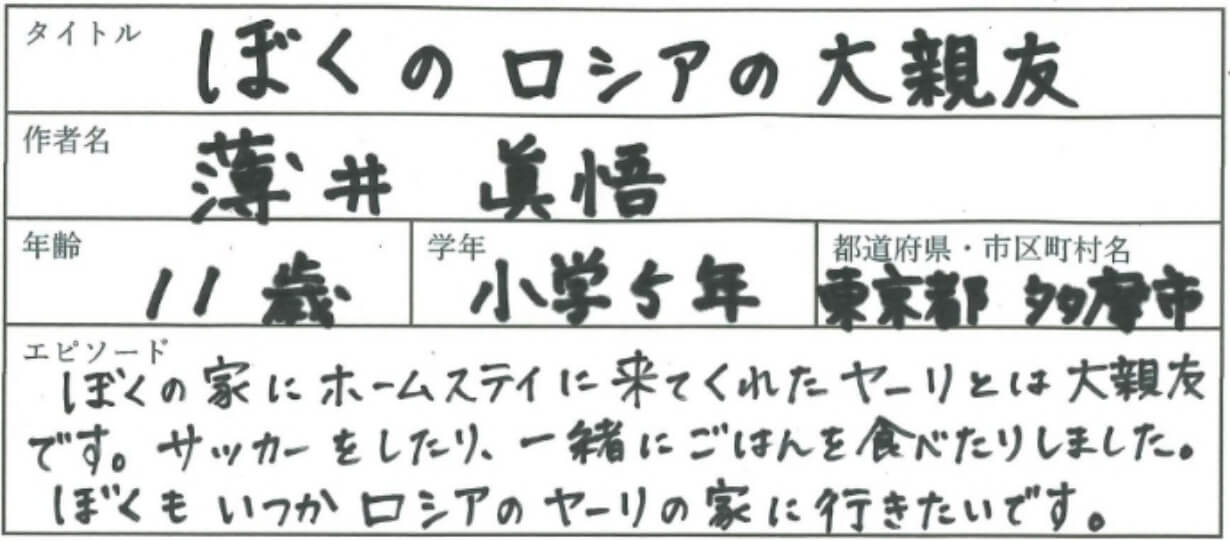 タイトル ぼくのロシアの大親友
作者名 薄井 眞悟
年齢 11歳 学年 小学5年 都道府県・市区町村名 東京都 多摩市
エピソード
ぼくの家にホームステイに来てくれたヤーリとは大親友
です。サッカーをしたり、一緒にごはんを食べたりしました。
ぼくもいつかロシアのヤーリの家に行きたいです。